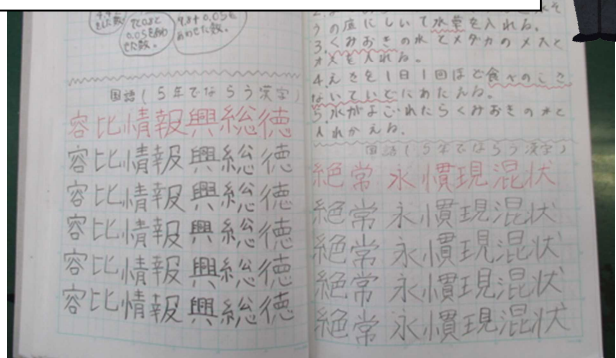 でCDはと
0.05をあわ
せた数。
9.4が0.05を
あわせた数。
国語(5年でならう漢字)
容比情報興総徳
容比情報興総徳
容比情報興総徳
容比情報興総徳
容比情報興総徳
容比情報興総徳
うの底にしいて水草を入れる。
3.くみおきの水とメダカのメスと
オスを入れる。
4.えさを1日1回ほど食べのこさ
ないていどにあたえる。
5.水がよごれたらくみおきの水と
入れかえる。
国語(5年でならう漢字)
絶常永慣現混状
絶常永慣現混状
絶常永慣現混状
絶常永慣現混状
絶常永慣現混状